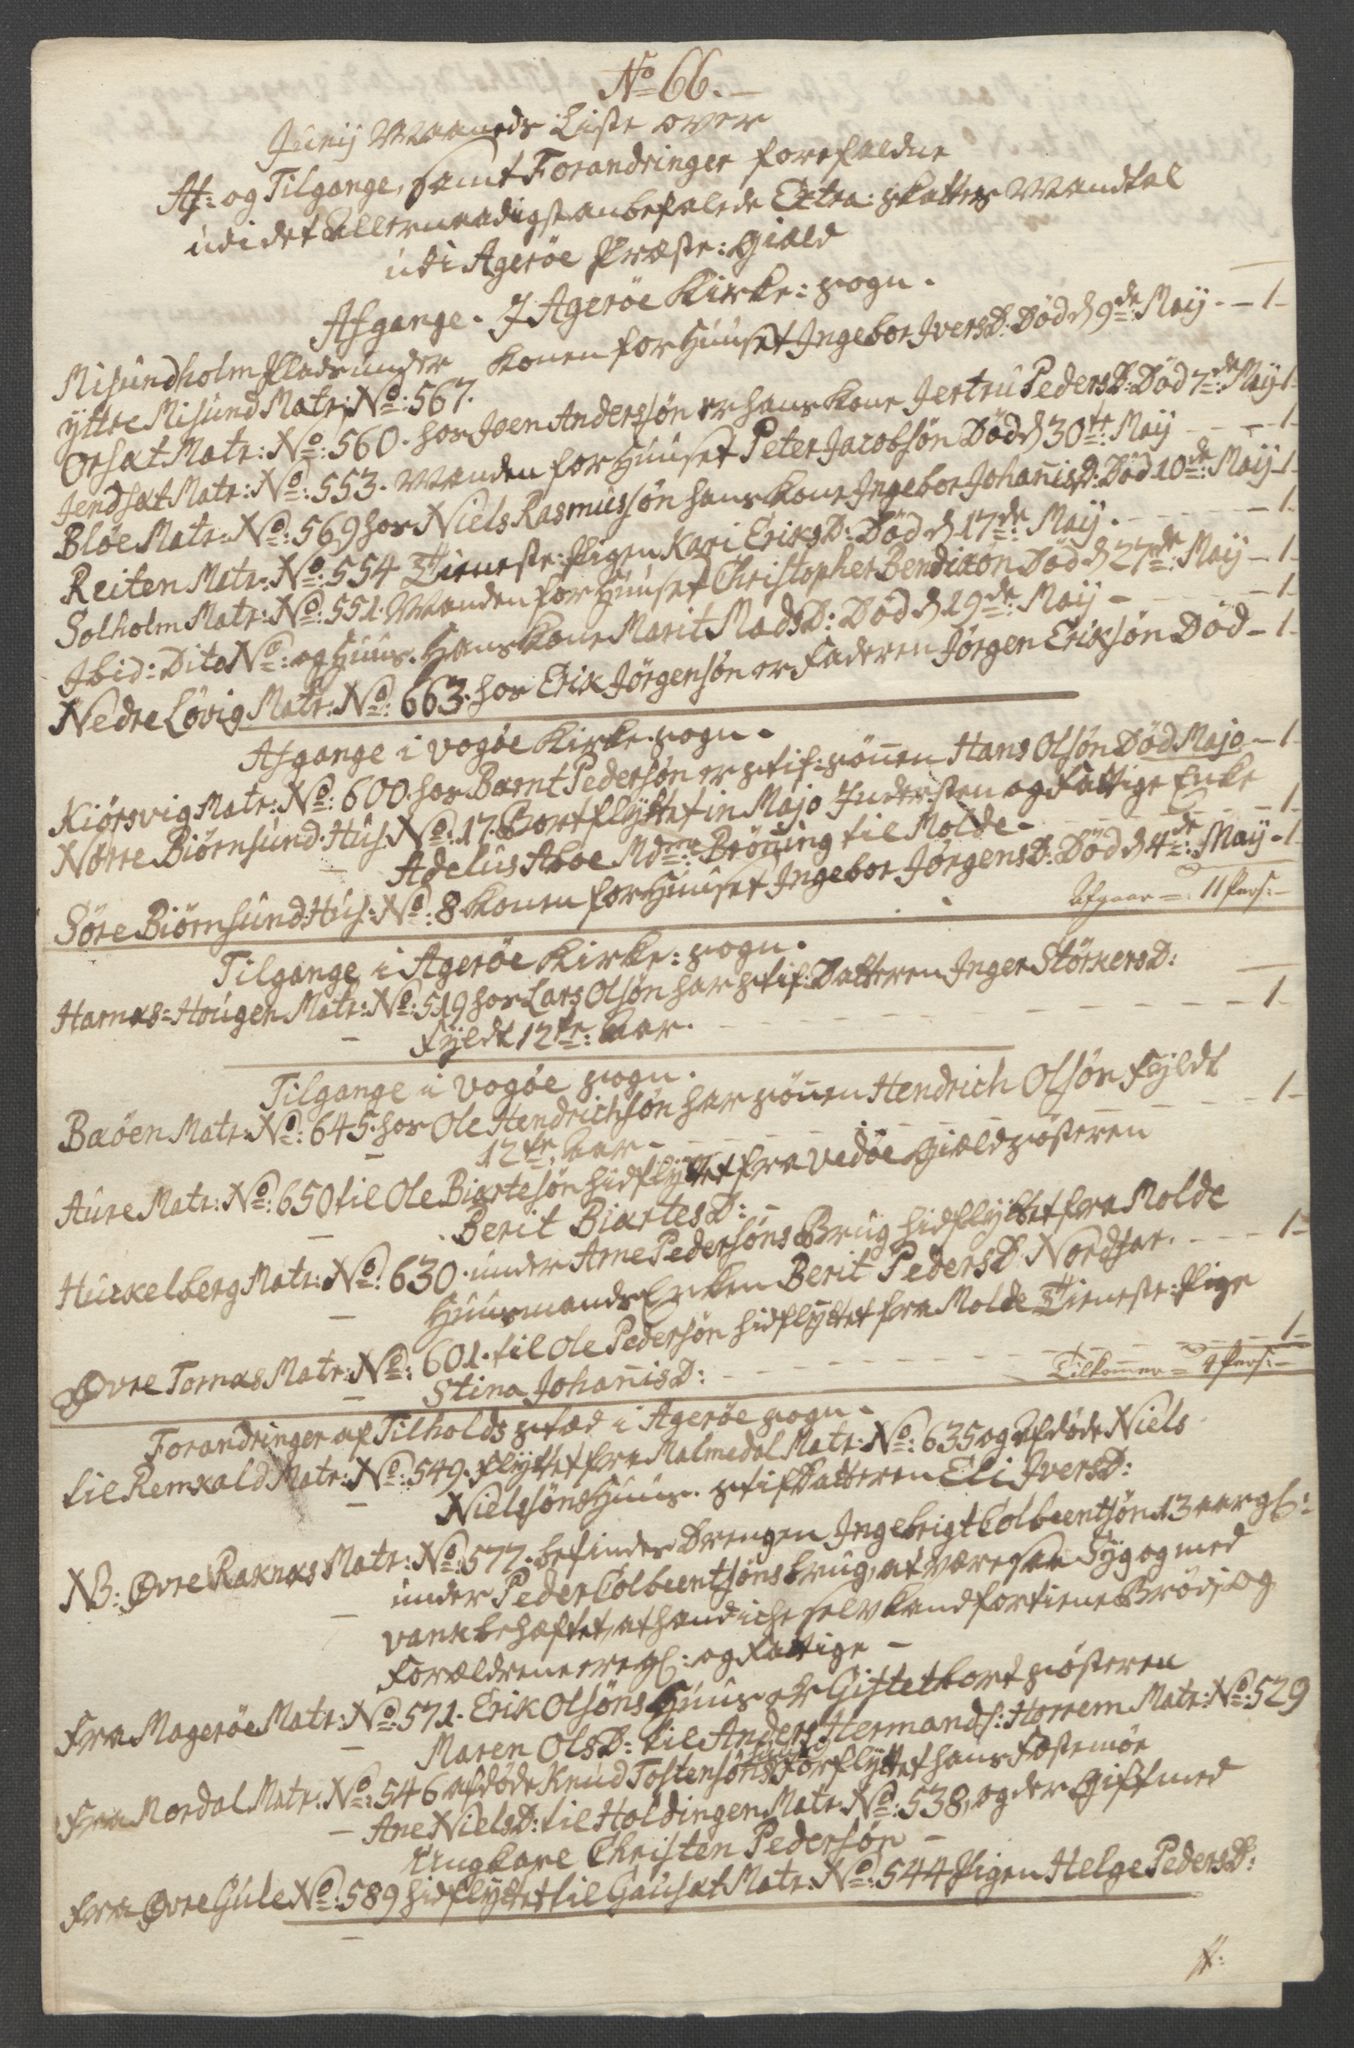 No 66.
Junij Maaneds Liste over
Af- og Tilgange, samt Forandringer forefaldne
udi det Allernaadigst anbefalede Extra: skattes Mandtal
udi Agerøe Præste: Giæld
Afgange. I Agerøe Kirke: sogn.
Misundholm Plads under Konen for Huuset Ingebor IversD. Død d 9de May - 1 -
yttre Misund Matr: No: 567.
Orsæt Matr: No: 560. hos Joen Anderssøn er hans kone Jertru PedersD: Død 7de: May 1 -
Jendsæt Matr: No: 553. Manden for Huuset Peter Jacobsøn Død d 30te: May - 1 -
Bløe Matr: No: 569 hos Niels Rasmussøn hans kone Ingebor JohanisD: Død 10de: May - 1 -
Reiten Matr: No: 554 Tieneste: Pigen Kari EriksD: Død d 17de May. - 1 -
Solholm Matr: No: 551. Manden for Huuset Christopher Bendixøn Død d 27de: May - 1 -
Ibid: Dito No: og Huus. Hans kone Marit MadsD: Død d 19de: May - 1 -
Nedre Løvig Matr: No: 663. hos Erik Jörgensøn er Faderen Jørgen Eriksøn Død - 1 -
Afgange i Vogøe Kirke sogn.
Kiörsvig Matr: No: 600. hos Barnt Pedersøn er stif: sønen Hans Olsøn Død Majo - 1 -
Nørre Biørnsund: Hus No: 17. Bortflyttet in Majo Indersten og Fattige Enke
Adelus Aboe Mdme: Brøning til Molde - 1 -
Søre Biørnsund: Hus: No: 8 Konen for Huuset Ingebor JørgensD: Død d 4de: May - 1
Afgaar = 11 Pers: -
Tilgange i Agerøe Kirke: sogn.
Harnæs = Hougen Matr: No: 519 hos Lars Olsøn har stif: Datteren Inger StørkersD:
Fyldt 12te: Aar. - 1 -
Tilgange i Vogøe sogn.
Baøen Matr: No: 645. hos Ole Hendrichsøn har sønen Hendrich Olsøn Fyldt
12te: Aar - 1 -
Aure Matr: No: 650 til Ole Biartesøn hidflyttet fra Vedøe Giæld søsteren
Berit BiartesD: -
Hurkelberg Matr: No: 630. under Arne Pedersøns Brug hidflyttet fra Molde
Huusmands Enken Berit PedersD: Nordsar. - 1 -
Øvre Tornæs Matr: No: 601. til Ole Pedersøn hidflyttet fra Molde Tieneste: Pige
Stina JohanisD: - 1 -
Tilkommer = 4 Pers: -
Forandringer af Tilholds stæd i Agerøe sogn.
til Remxald Matr: No: 549. flyttet fra Malmedal Matr: No: 635 og Afdøde Niels
Nielssøns Huus. stif Datteren Eli IversD:
NB: Øvre Raknæs Matr: No: 577. befindes Drengen Ingebrigt Colbentsøn 13 aar gl:
under Peder Colbeentsøns brug, at være saa Syg og med
vank behæftet, at hand iche selv kand fortiene Brød, og
Forældrene ere gl: og Fattige -
Fra Magerøe Matr: No: 571. Erik Olsøns Huus er Giftet bort søsteren
Maren OlsD: til Anders Hermands: Horrem Matr: No: 529
Fra Mordal Matr: No: 546 afdøde Knud Tostensøns Huus Forflyttet hans Fæstemøe
Ane NielsD: til Holdingen Matr: No: 538, og der Gift med
Ungkare Christen Pedersøn -
Fra Øvre Gule No: 589 hidflyttet til Gausæt Matr: No: 544 Pigen Helge PedersD: